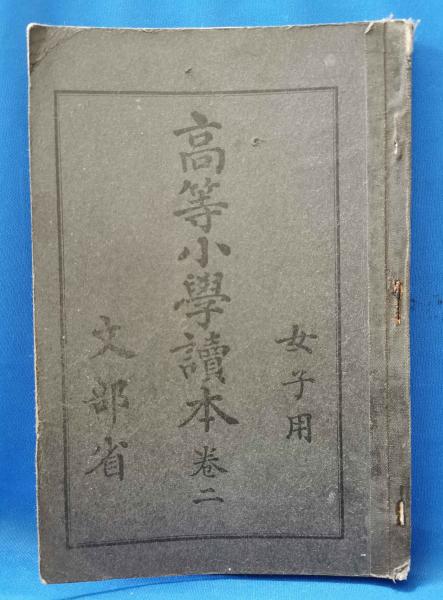 女子用
高等小學讀本 卷二
文部省